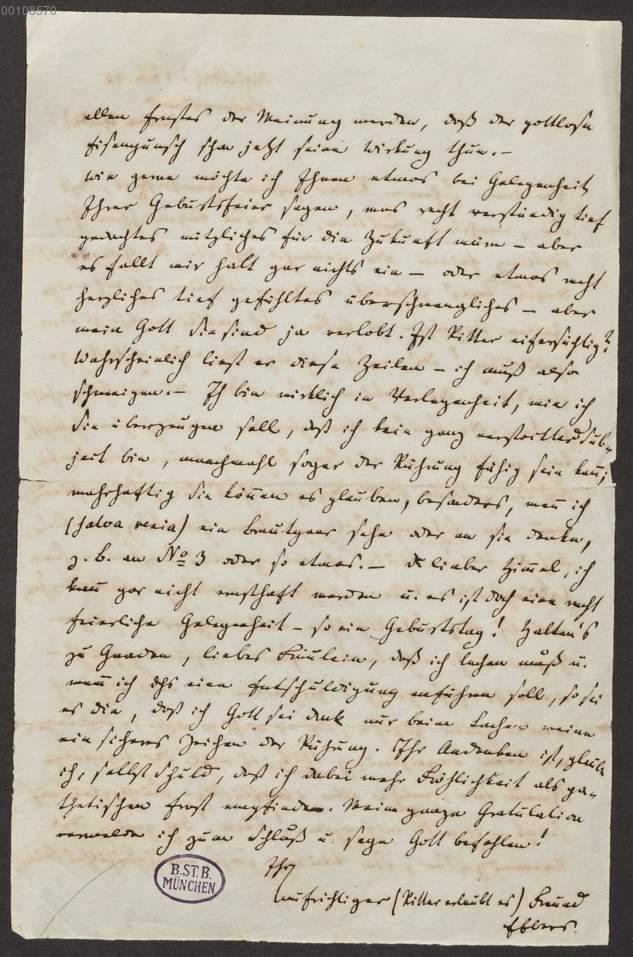 00108570
allen Ernstes der Meinung werden, daß der gottlose
Eisenpunsch schon jetzt seine Wirkung thue. –
Wie gerne möchte ich Ihnen etwas bei Gelegenheit
Ihrer Geburtsfeier sagen, was recht verständig tief
gedachtes nützliches für die Zukunft wäre – aber
es fällt mir halt gar nichts ein – oder etwas recht
herzliches tief gefühltes überschwengliches – aber
mein Gott Sie sind ja verlobt. Ist Ritter eifersüchtig?
Wahrscheinlich liest er diese Zeilen – ich muß also
schweigen. – Ich bin wirklich in Verlegenheit, wie ich
Sie überzeugen soll, daß ich kein ganz Sub-
jeckt bin, manchmahl sogar der Rührung fähig sein kann;
wahrhaftig Sie können es glauben, besonders, wenn ich
(salva venia) ein Brautpaar sehe oder an sie denke,
z. B. an No 3 oder so etwas. – Du lieber Himmel, ich
kann gar nicht ernsthaft werden u. es ist doch eine recht
feierliche Gelegenheit – so ein Geburtstag! Halten's
zu Gnaden, liebes Fräulein, daß ich lachen muß u.
wenn ich eine Entschuldigung anführen soll, so sei
es die, daß ich Gott sei dank nur beim Lachen weine
ein sicheres Zeichen der Rührung. Ihr Andenken ist, glaube
ich, selbst Schuld, daß ich dabei mehr Fröhlichkeit als pa-
thetischen Ernst empfinde. Meine ganze Gratulation
verwende ich zum Schluß u. sage Gott befohlen!
Ihr
aufrichtiger (Ritter erlaubt es) Freund
Ebers.
B.ST.B.
MÜNCHEN